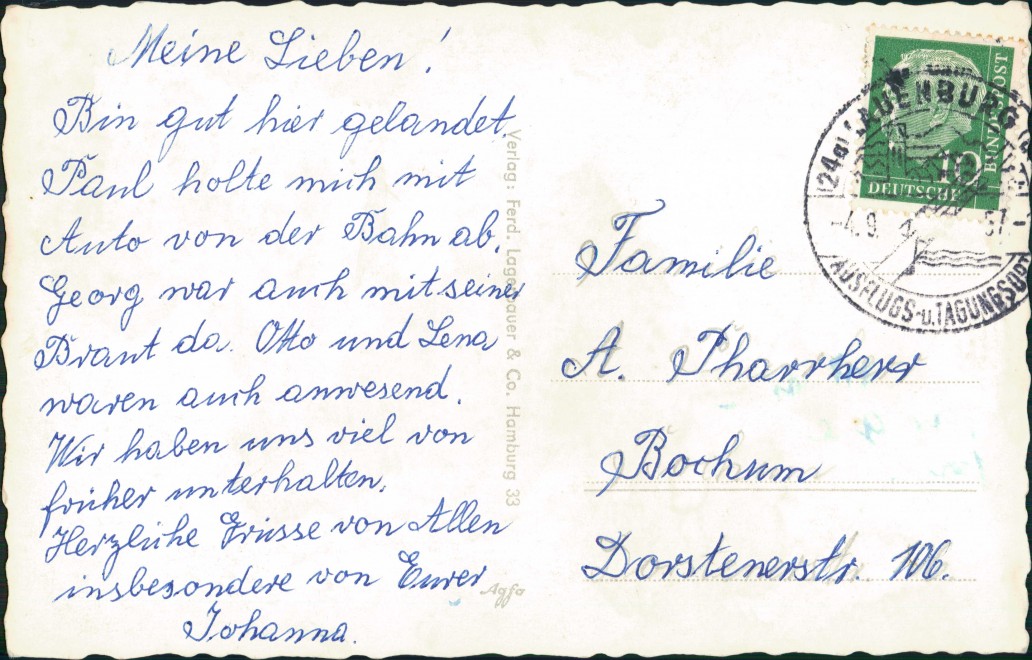 Meine Lieben!
Bin gut hier gelandet.
Paul holte mich mit
Auto von der Bahn ab.
Georg war auch mit seiner
Braut da. Otto und Lena
waren auch anwesend.
Wir haben uns viel von
früher unterhalten.
Herzliche Grüsse von Allen
insbesondere von Eurer
Johanna.
Verlag: Ferd. Lagerbauer & Co. Hamburg 33
Agfa
Familie
A. Pharrherr
Bochum
Dorstenerstr. 106.
DEUTSCHE
BUNDESPOST
10
(24a) LAUENBURG
-4.9.
AUSFLUGS-u.TAGUNGSOR